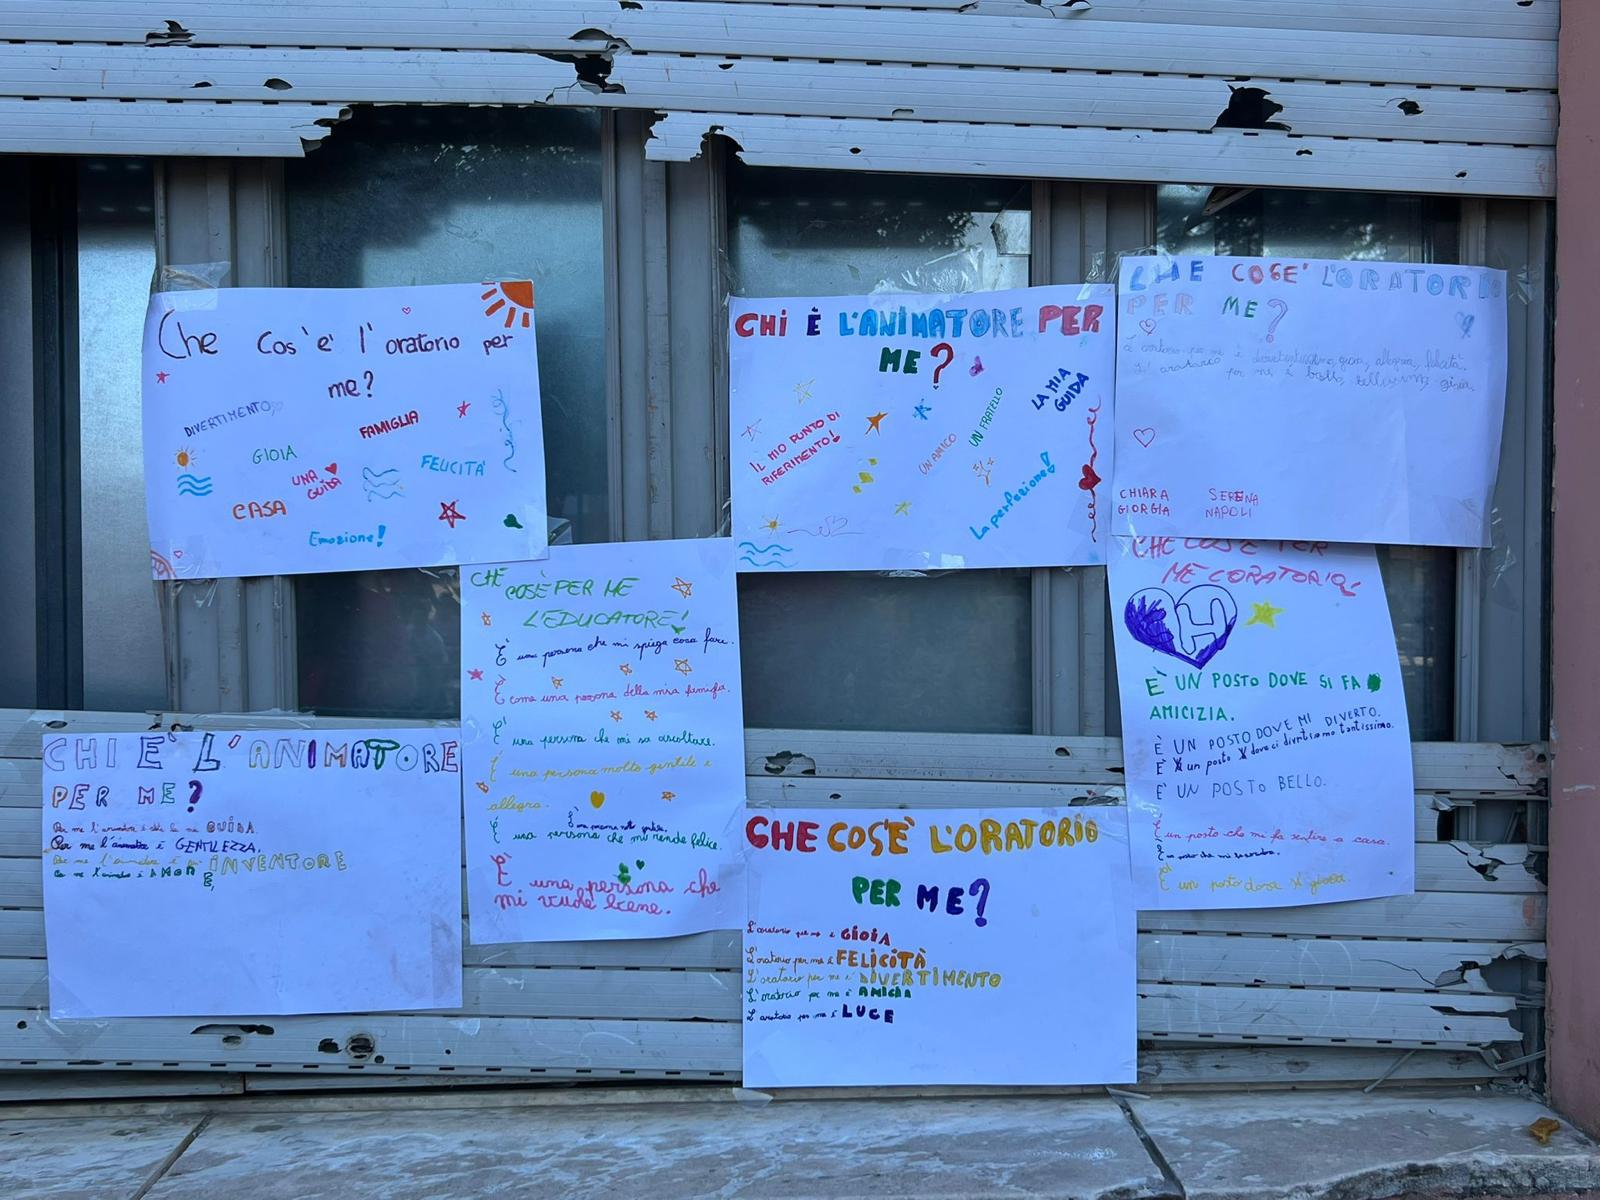 Che cos'e' l' oratorio per
me?
DIVERTIMENTO
FAMIGLIA
GIOIA
UNA
GUIDA
FELICITA'
CASA
Emozione!
CHI È L'ANIMATORE PER
ME?
IL MIO PUNTO DI
RIFERIMENTO!
UN AMICO
UN FRATELLO
LA MIA
GUIDA
La perfezione!
CHE COSE' L'ORATORIO
PER ME?
CHIARA SERENA
GIORGIA NAPOLI
CHE
COSÈ PER ME
L'EDUCATORE!
È una persona che mi spiega cosa fare.
È come una persona della mia famiglia.
E' una persona che mi sa ascoltare.
È una persona molto gentile e
allegra.
È una persona che mi rende felice.
È una persona che
mi vuole bene.
CHE COS'È PER
ME L'ORATORIO?
H
È UN POSTO DOVE SI FA
AMICIZIA.
È UN POSTO DOVE MI DIVERTO.
È un posto dove ci divertiamo tantissimo.
E' UN POSTO BELLO.
È un posto che mi fa sentire a casa.
È un posto dove si gioca.
CHI E' L'ANIMATORE
PER ME?
Per me l'animatore è la mia GUIDA.
Per me l'animatore è GENTILEZZA.
Per me l'animatore è INVENTORE
Per me l'animatore è AMORE
CHE COS'È L'ORATORIO
PER ME?
L'oratorio per me è GIOIA
L'oratorio per me è FELICITÀ
L'oratorio per me è DIVERTIMENTO
L'oratorio per me è
L'oratorio per me è LUCE